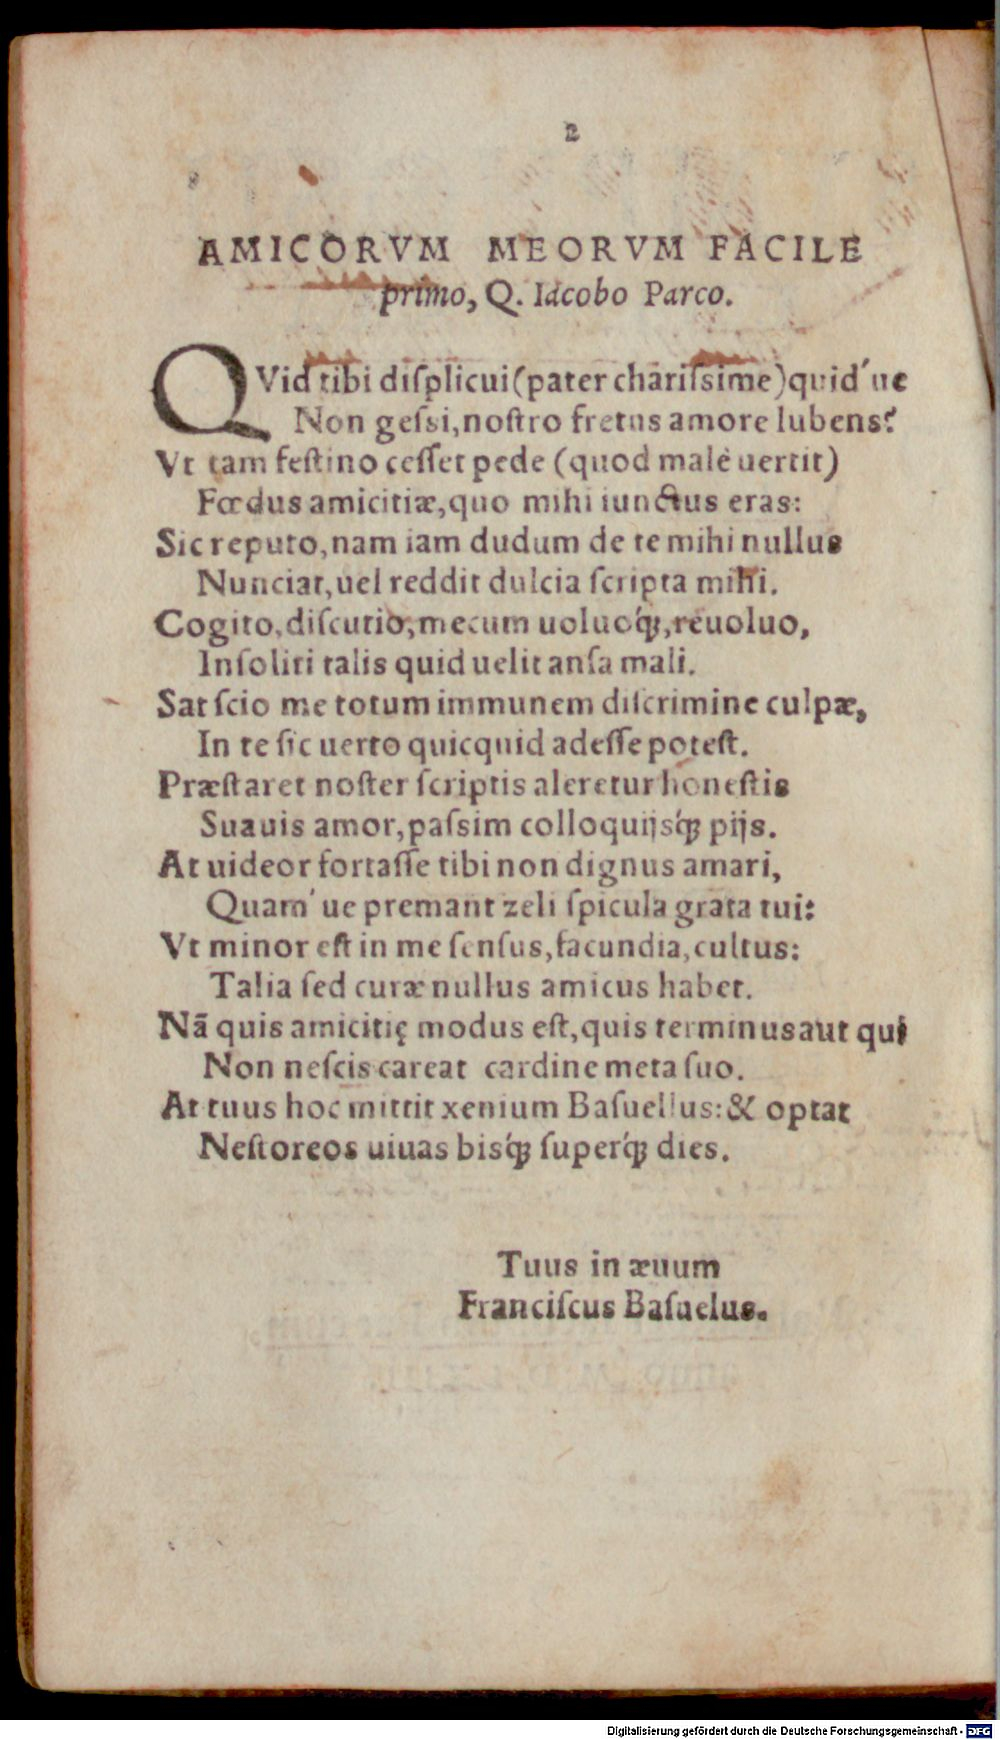 2
AMICORVM MEORVM FACILE
primo, Q. Iacobo Parco.
QVid tibi diſplicui (pater chariſsime) quid'ue
Non geſsi, noſtro fretus amore lubens?
Vt tam feſtino ceſſet pede (quod malè uertit)
Fœdus amicitiæ, quo mihi iunctus eras:
Sic reputo, nam iam dudum de te mihi nullus
Nunciat, uel reddit dulcia ſcripta mihi.
Cogito, diſcutio, mecum uoluoq́ꝫ, reuoluo,
Inſoliti talis quid uelit anſa mali.
Sat ſcio me totum immunem diſcrimine culpæ,
In te ſic uerto quicquid adeſſe poteſt.
Præſtaret noſter ſcriptis aleretur honeſtis
Suauis amor, paſsim colloquijsq́ꝫ pijs.
At uideor fortaſſe tibi non dignus amari,
Quam'ue premant zeli ſpicula grata tui:
Vt minor eſt in me ſenſus, facundia, cultus:
Talia ſed curæ nullus amicus habet.
Nã quis amicitię modus eſt, quis terminus aut qui
Non neſcis careat cardine meta ſuo.
At tuus hoc mittit xenium Baſuellus: & optat
Neſtoreos uiuas bisq́ꝫ ſuperq́ꝫ dies.
Tuus in æuum
Franciſcus Baſuelus.
Digitalisierung gefördert durch die Deutsche Forschungsgemeinschaft - DFG